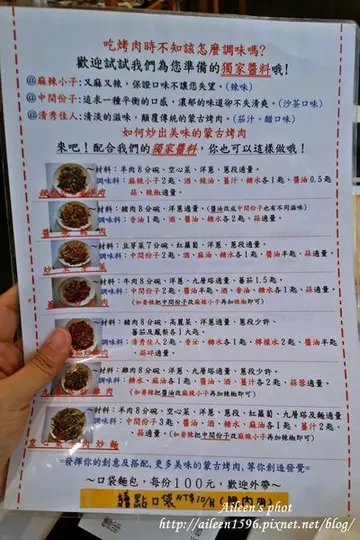 吃烤肉時不知該怎麼調味嗎?
歡迎試試我們為您準備的獨家醬料哦!
@麻辣小子:又麻又辣,保證口味不讓您失望。(辣味)
@中間份子:追求一種平衡的口感,濃郁的味道卻不失清爽。(沙茶口味)
@清秀佳人:清淡的滋味,顛覆傳統的蒙古烤肉。(茄汁、醋口味)
如何炒出美味的蒙古烤肉
來吧!配合我們的獨家醬料,你也可以這樣做哦!
~材料:羊肉8分碗、空心菜、洋蔥適量。
調味料:麻辣小子2匙、酒、辣油、薑汁、糖水各1匙、醬油0.5匙
蒜、辣椒適量。
~材料:豬肉8分碗、洋蔥、蔥段適量。(醬油改成中間份子也有不同滋味)
調味料:香油1匙、酒、醬油、糖水各2匙、蒜適量。
~材料:豆芽菜7分碗、紅蘿蔔、洋蔥、蔥段適量。
調味料:中間份子2匙、酒、麻油、糖水各1匙、醬油半匙、蒜適量。
~材料:牛肉8分碗、洋蔥、九層塔適量、蕃茄1.5匙。
調味料:中間份子2匙、醬油半匙、酒、香油、糖水各1匙、蒜適量。
(如要辣把中間份子改麻辣小子再加辣椒即可)
~材料:豬肉8分碗、高麗菜、洋蔥、蔥段少許、
蕃茄及鳳梨各1大匙。
調味料:清秀佳人2匙、香油、糖水各1匙、檸檬水2匙、醬油半匙、
蒜碎適量。
~材料:雞肉8分碗、九層塔適量、蔥段少許。
調味料:糖水、麻油各1匙、醬油、酒、薑汁各2匙、蒜蓉適量。
(如要辣把醬油改麻辣小子再加辣椒即可)
~材料:羊肉8分碗、空心菜、洋蔥、蔥段、紅蘿蔔、九層塔及麵適量
調味料:中間份子3匙、醬油、酒、麻油、糖水各1匙、薑汁2匙、
蒜適量。(如要辣把中間份子改麻辣小子再加辣椒即可)
空心菜羊肉炒麵
=發揮你的創意及搭配,更多美味的蒙古烤肉,等你創造發覺=
~口袋麵包,每份100元,歡迎外帶~
續點口袋NT$10/
Aileen's phot
http://aileen1596.pixnet.net/blog/